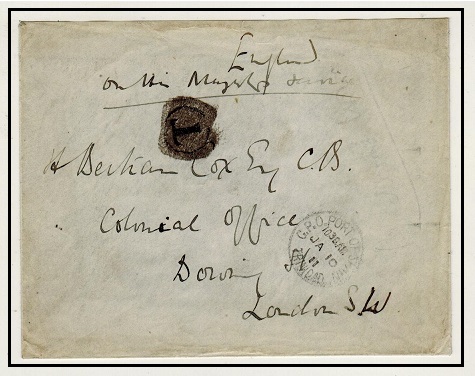 England
On His Majestys Service
H Bertram Cox Esq C.B.
Colonial Office
Downing S
London S.W
T
G.P.O. PORT OF
JA 10
11
TRINIDAD